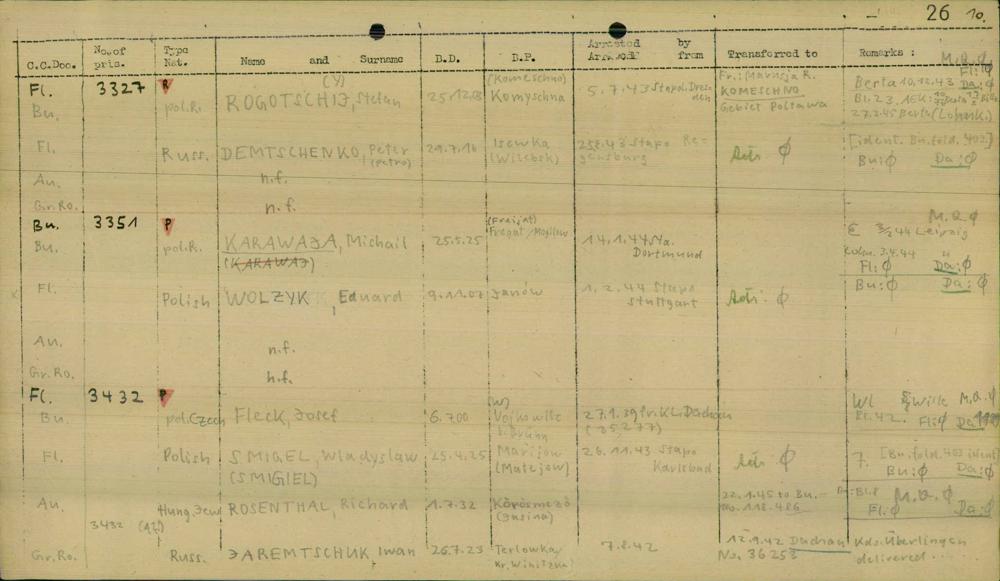 26 10.
C.C.Doc. No. of pris. Type Nat. Name and Surname B.D. B.P. Arrested by from Transferred to Remarks :
M.Q.Ø
Fl. 3327 R (Y) (Komeschno) Fr.: Marusja R. Fl:Ø
Bu. pol.R. ROGOTSCHIJ, Stefan 25.12.03 Komyschna 5.7.43 Stapol. Dresden KOMESCHNO Berta 10.12.43 Da:Ø
Gebiet Poltawa
27.2.45 Berta
Fl. Russ. DEMTSCHENKO, Peter 29.7.16 Isewka Stapo Regensburg Ø [ident. Bu. fold. 402]
(Petro) (Witebsk) Bu:Ø Da:Ø
Au. n.f.
Gr.Ro. n.f.
Bu. 3351 P (Freijat) M.Q.Ø
Bu. pol.R. KARAWAJA, Michail 25.5.25 Fregat/Mogilew 14.1.44 Sta. Dortmund 44 Leipzig
(KARAWAJ) 3.4.44
Fl:Ø Da:Ø
Fl. Polish WOLZYK, Eduard 9.11.07 Janów 1.2.44 Stapo Stuttgart Ø Bu:Ø Da:Ø
Au. n.f.
Gr.Ro. n.f.
Fl. 3432 P Wl Wille M.Q.Ø
Bu. pol.Czech Fleck, Josef 6.7.00 27.1.39 fr. KL. Dachau Bl.42. Fl:Ø Da:
b. Brünn (35277)
Fl. Polish SMIGEL, Wladyslaw 25.4.25 Marijow 26.11.43 Stapo Karlsbad Ø 7. [Bu. fold. 403 ident]
(SMIGIEL) (Matejow) Bu:Ø Da:Ø
Au. Hung.Jew ROSENTHAL, Richard 1.7.32 Körösmezö 22.1.45 to Bu. M.Q.Ø
3432 (Jasina) no. 118.486 Fl:Ø Da:Ø
Gr.Ro. Russ. JAREMTSCHUK, Iwan 26.7.23 Terlowka, 7.8.42 12.9.42 Dachau Kdo. Überlingen
Kr. Winitza No. 36253 delivered . . . .